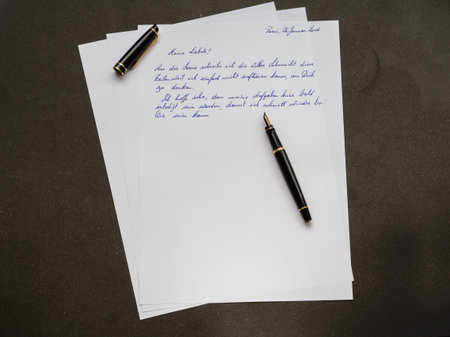 Paris, Januar
Meine Liebste!
Aus der Ferne schreibe ich dir voller Sehnsucht diese
weil ich einfach nicht aufhören kann, an Dich
zu denken.
Ich hoffe sehr, dass meine Aufgaben hier bald
erledigt sein werden, damit ich schnell wieder bei
Dir sein kann